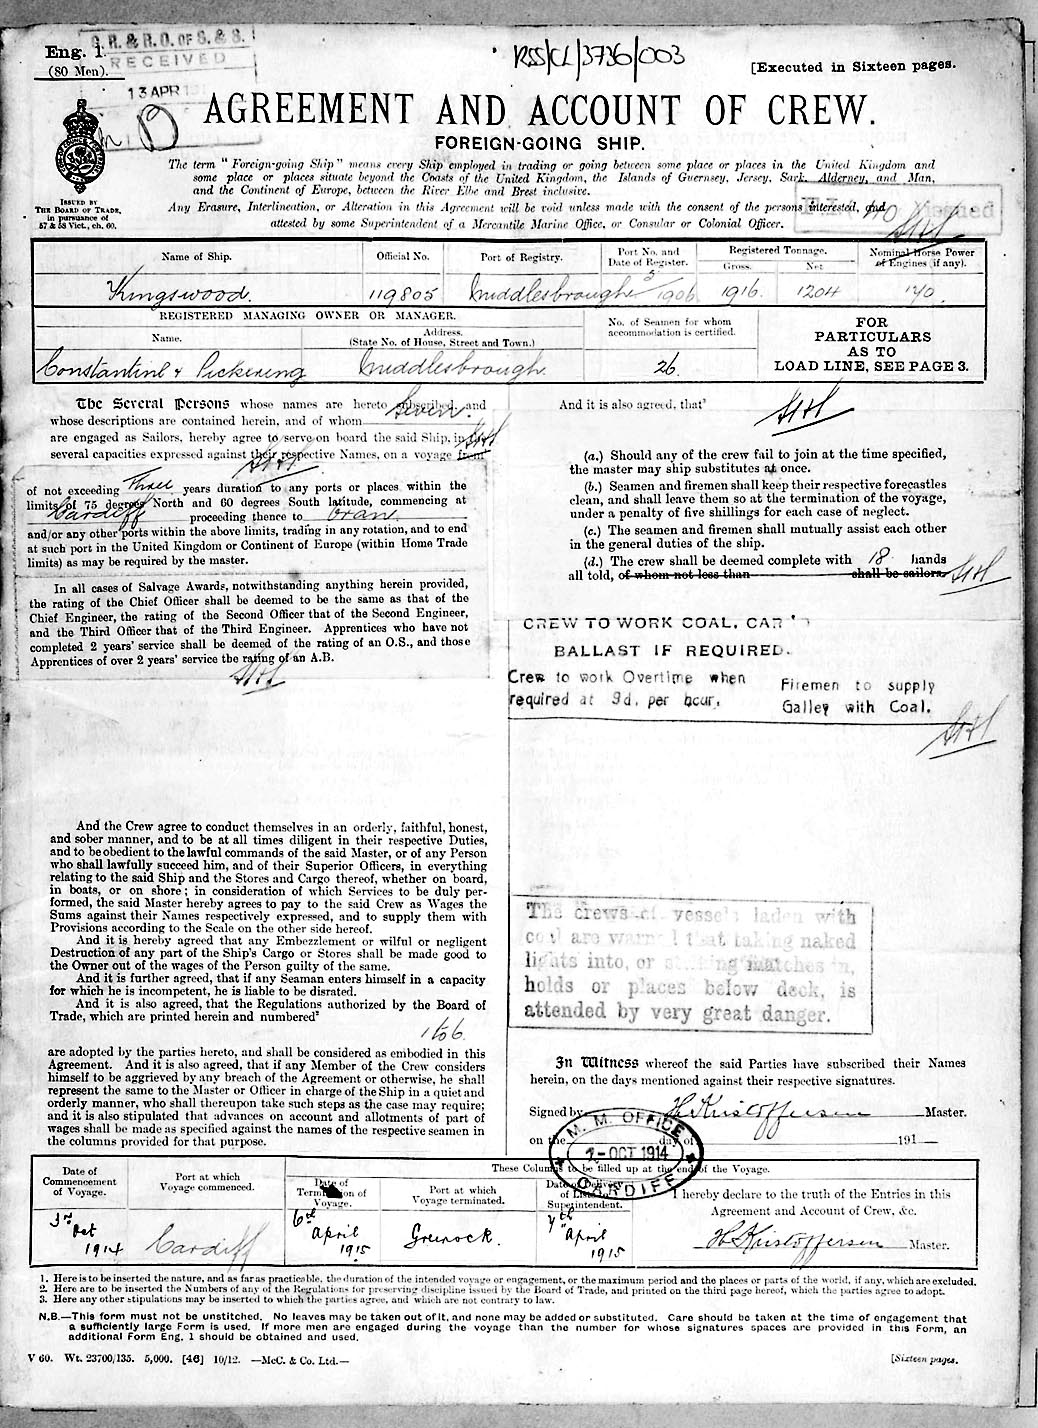 Eng. 1.
(80 Men).
G. R. & R. O. OF S. & S.
RECEIVED
13 APR
RSS/CL/3736/003
[Executed in Sixteen pages.
AGREEMENT AND ACCOUNT OF CREW.
FOREIGN-GOING SHIP.
ISSUED BY
THE BOARD OF TRADE,
in pursuance of
57 & 58 Vict., ch. 60.
The term "Foreign-going Ship" means every Ship employed in trading or going between some place or places in the United Kingdom and
some place or places situate beyond the Coasts of the United Kingdom, the Islands of Guernsey, Jersey, Sark, Alderney, and Man,
and the Continent of Europe, between the River Elbe and Brest inclusive.
Any Erasure, Interlineation, or Alteration in this Agreement will be void unless made with the consent of the persons interested, and
attested by some Superintendent of a Mercantile Marine Office, or Consular or Colonial Officer.
Name of Ship.
Official No.
Port of Registry.
Port No. and
Date of Register.
Registered Tonnage.
Gross.
Net
Nominal Horse Power
of Engines (if any).
Kingswood.
119805
Middlesbrough
5/1906
1916.
1204
170.
REGISTERED MANAGING OWNER OR MANAGER.
Name.
Address.
(State No. of House, Street and Town.)
No. of Seamen for whom
accommodation is certified.
FOR
PARTICULARS
AS TO
LOAD LINE, SEE PAGE 3.
Constantine & Pickering
Middlesbrough.
26.
The Several Persons whose names are hereto subscribed, and
whose descriptions are contained herein, and of whom seven.
are engaged as Sailors, hereby agree to serve on board the said Ship, in the
several capacities expressed against their respective Names, on a voyage from
of not exceeding three years duration to any ports or places within the
limits of 75 degrees North and 60 degrees South latitude, commencing at
Cardiff proceeding thence to Oran.
and/or any other ports within the above limits, trading in any rotation, and to end
at such port in the United Kingdom or Continent of Europe (within Home Trade
limits) as may be required by the master.
In all cases of Salvage Awards, notwithstanding anything herein provided,
the rating of the Chief Officer shall be deemed to be the same as that of the
Chief Engineer, the rating of the Second Officer that of the Second Engineer,
and the Third Officer that of the Third Engineer. Apprentices who have not
completed 2 years' service shall be deemed of the rating of an O.S., and those
Apprentices of over 2 years' service the rating of an A.B.
And the Crew agree to conduct themselves in an orderly, faithful, honest,
and sober manner, and to be at all times diligent in their respective Duties,
and to be obedient to the lawful commands of the said Master, or of any Person
who shall lawfully succeed him, and of their Superior Officers, in everything
relating to the said Ship and the Stores and Cargo thereof, whether on board,
in boats, or on shore; in consideration of which Services to be duly per-
formed, the said Master hereby agrees to pay to the said Crew as Wages the
Sums against their Names respectively expressed, and to supply them with
Provisions according to the Scale on the other side hereof.
And it is hereby agreed that any Embezzlement or wilful or negligent
Destruction of any part of the Ship's Cargo or Stores shall be made good to
the Owner out of the wages of the Person guilty of the same.
And it is further agreed, that if any Seaman enters himself in a capacity
for which he is incompetent, he is liable to be disrated.
And it is also agreed, that the Regulations authorized by the Board of
Trade, which are printed herein and numbered²
1 to 6.
are adopted by the parties hereto, and shall be considered as embodied in this
Agreement. And it is also agreed, that if any Member of the Crew considers
himself to be aggrieved by any breach of the Agreement or otherwise, he shall
represent the same to the Master or Officer in charge of the Ship in a quiet and
orderly manner, who shall thereupon take such steps as the case may require;
and it is also stipulated that advances on account and allotments of part of
wages shall be made as specified against the names of the respective seamen in
the columns provided for that purpose.
And it is also agreed, that³
(a.) Should any of the crew fail to join at the time specified,
the master may ship substitutes at once.
(b.) Seamen and firemen shall keep their respective forecastles
clean, and shall leave them so at the termination of the voyage,
under a penalty of five shillings for each case of neglect.
(c.) The seamen and firemen shall mutually assist each other
in the general duties of the ship.
(d.) The crew shall be deemed complete with 18 hands
all told, of whom not less than shall be sailors.
CREW TO WORK COAL, CAR
BALLAST IF REQUIRED.
Crew to work Overtime when
required at 9d. per hour.
Firemen to supply
Galley with Coal.
The crews of vessels laden with
coal are warned that taking naked
lights into, or striking matches in,
holds or places below deck, is
attended by very great danger.
In Witness whereof the said Parties have subscribed their Names
herein, on the days mentioned against their respective signatures.
Signed by H. Kristoffersen Master.
on the day of 191
M. M. OFFICE
2-OCT 1914
CARDIFF
Date of
Commencement
of Voyage.
Port at which
Voyage commenced.
These Columns to be filled up at the end of the Voyage.
Date of
Termination of
Voyage.
Port at which
Voyage terminated.
Date of Delivery
of Lists to
Superintendent.
I hereby declare to the truth of the Entries in this
Agreement and Account of Crew, &c.
3rd Oct 1914
Cardiff
6th April 1915
Greenock.
7th April 1915
H. Kristoffersen Master.
1. Here is to be inserted the nature, and as far as practicable, the duration of the intended voyage or engagement, or the maximum period and the places or parts of the world, if any, which are excluded.
2. Here are to be inserted the Numbers of any of the Regulations for preserving discipline issued by the Board of Trade, and printed on the third page hereof, which the parties agree to adopt.
3. Here any other stipulations may be inserted to which the parties agree, and which are not contrary to law.
N.B.—This form must not be unstitched. No leaves may be taken out of it, and none may be added or substituted. Care should be taken at the time of engagement that
a sufficiently large Form is used. If more men are engaged during the voyage than the number for whose signatures spaces are provided in this Form, an
additional Form Eng. 1 should be obtained and used.
V 60. Wt. 23700/135. 5,000. [46] 10/12. —McC. & Co. Ltd.—
[Sixteen pages.